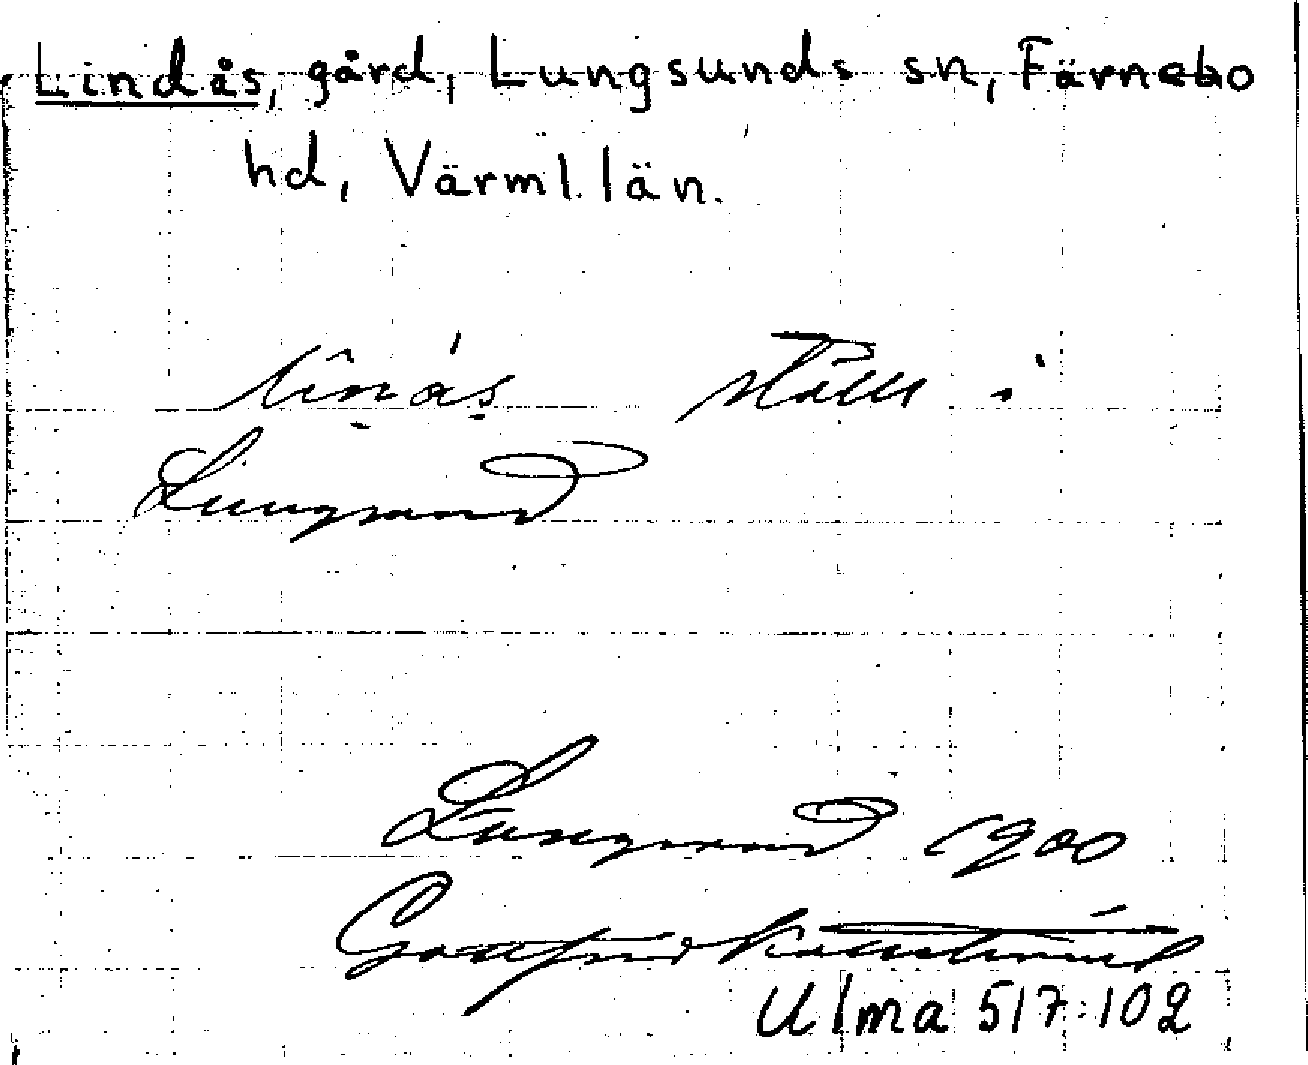 Lindås, gård, Lungsunds sn, Färnebo
hd, Värml. län.
ställe i
Lungsund
Lungsund 1900
Gottfrid Kallstenius
Ulma 517:102